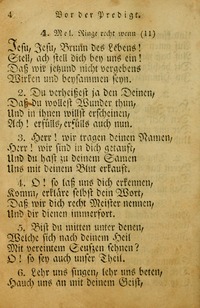 4 Vor der Predigt.
4. Mel. Ringe recht wenn (11)
Jesu, Jesu, Brunn des Lebens!
Stell, ach stell dich bey uns ein!
Daß wir jetzund nicht vergebens
Wirken und beysammen seyn.
2. Du verheißest ja den Deinen,
Daß du wollest Wunder thun,
Und in ihnen willst erscheinen,
Ach! erfülls, erfülls auch nun.
3. Herr! wir tragen deinen Namen,
Herr! wir sind in dich getauft,
Und du hast zu deinem Samen
Uns mit deinem Blut erkauft.
4. O! so laß uns dich erkennen,
Komm, erkläre selbst dein Wort,
Daß wir dich recht Meister nennen,
Und dir dienen immerfort.
5. Bist du mitten unter denen,
Welche sich nach deinem Heil
Mit vereintem Seufzen sehnen?
O! so sey auch unser Theil.
6. Lehr uns singen, lehr uns beten,
Hauch uns an mit deinem Geist,